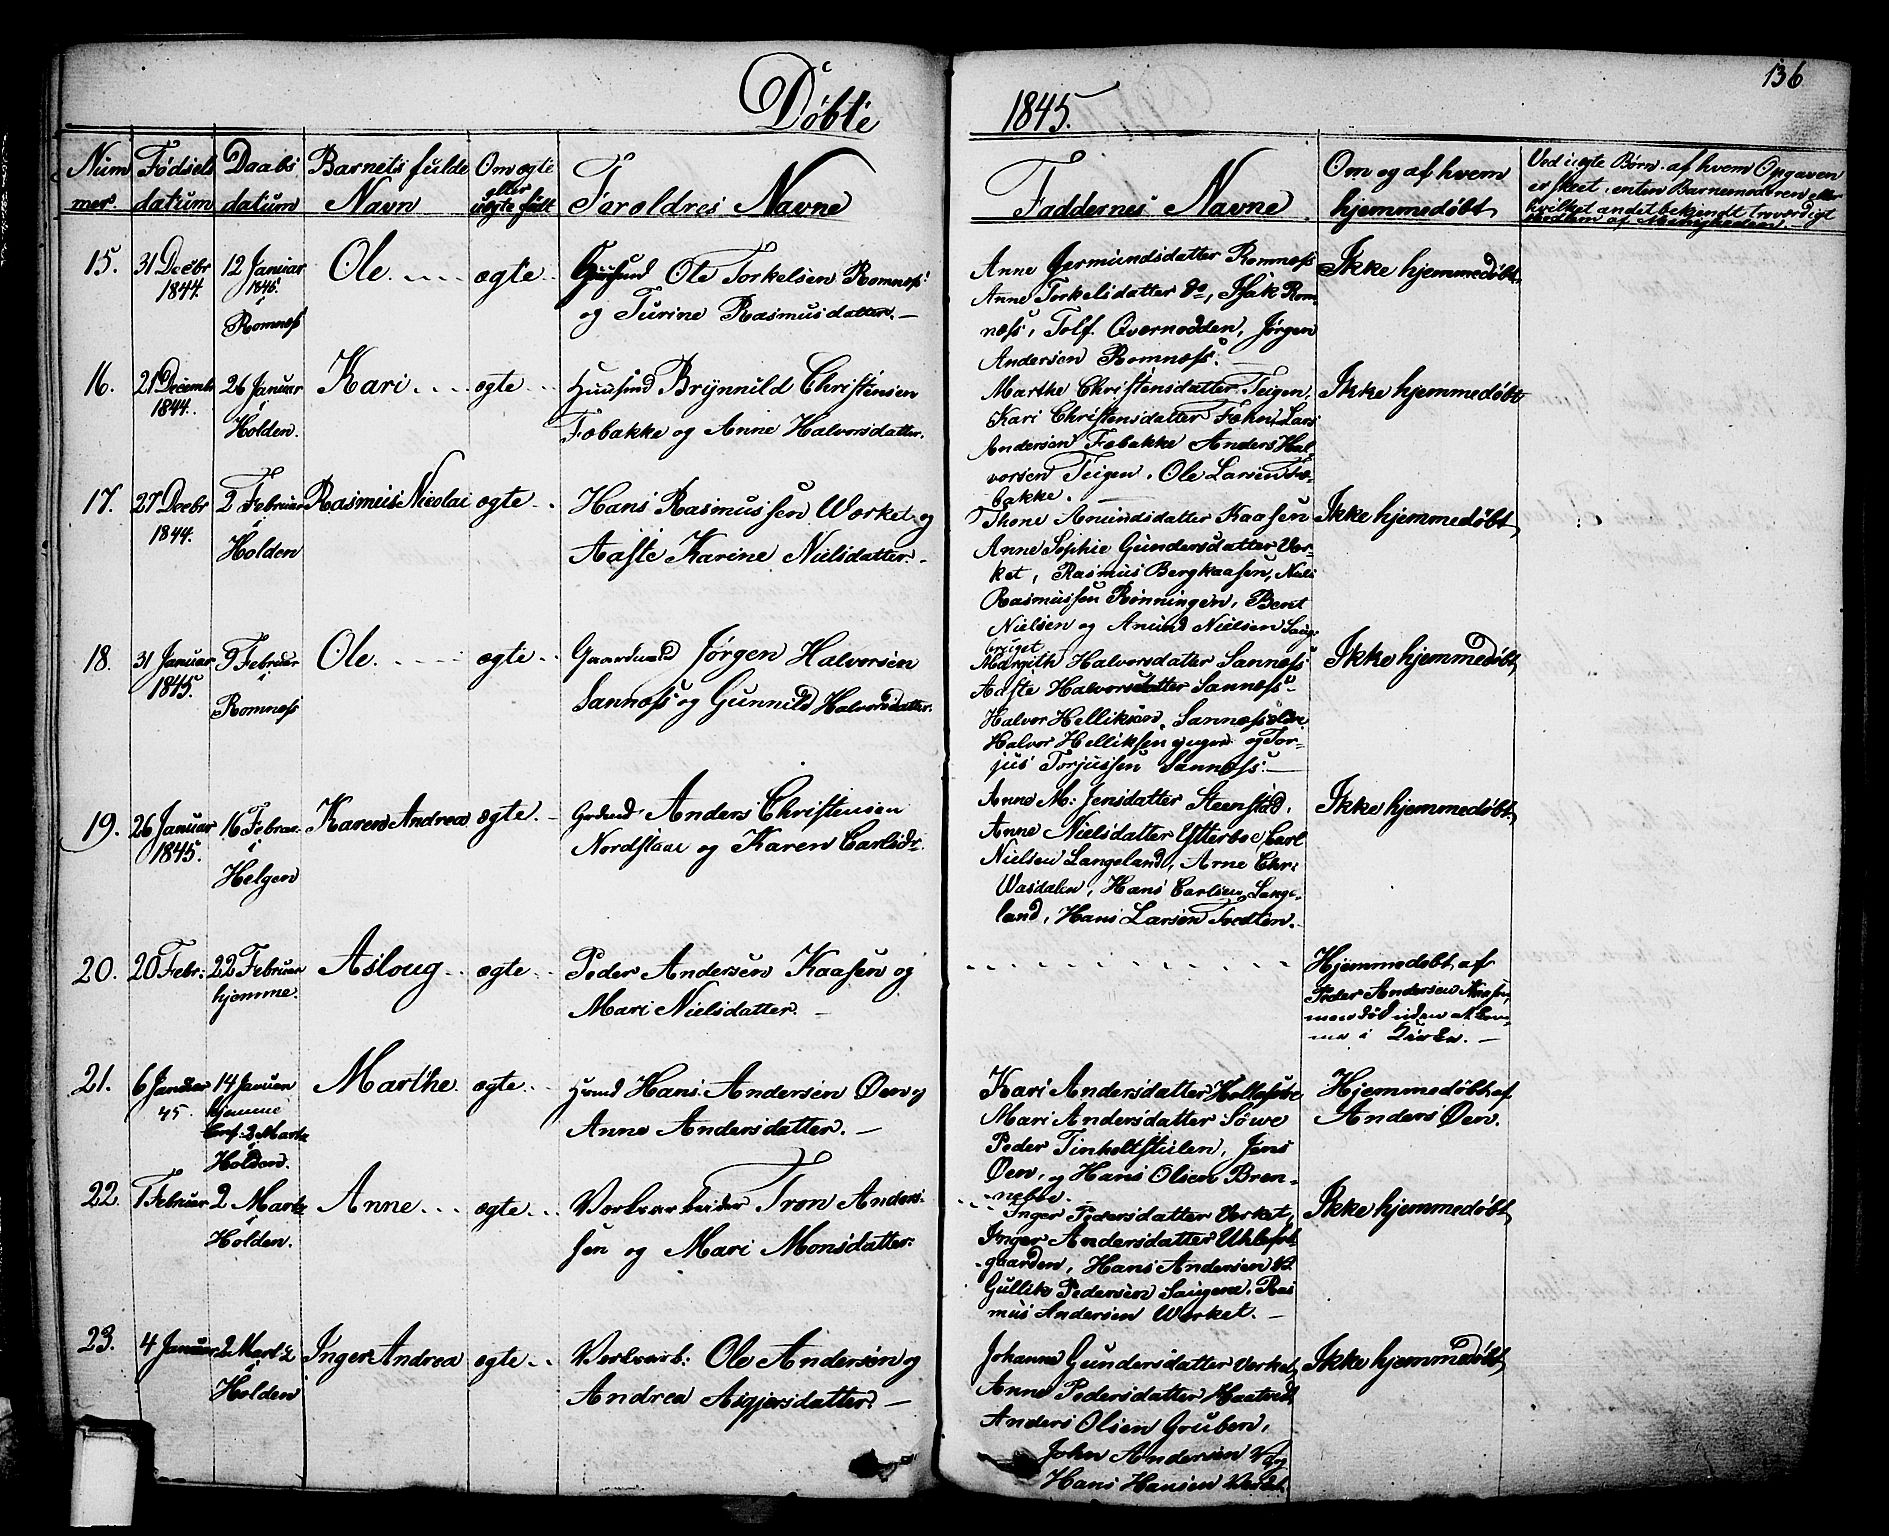 Døbte 1845.
136
Num
mer.
Fødsels
datum
Daabs
datum
Barnets fulde
Navn
Om ægte
eller
uægte født
Foroldres Navne
Faddernes Navne
Om og af hvem
hjemmedøbt
Ved uægte Børn af hvem Opgaven
er skeet, enten Barnemoderen eller
hvilket andet bekjendt troværdigt
Medlem af Menigheden.
15. 31 Decbr 1844. 12 Januar 1845. i Romnæs
Ole. ægte
Huusmd Ole Torkelsen Romnæs
og Turine Rasmusdatter.
Anne Germundsdatter Romnæs
Anne Torkelsdatter do, Isak Rom
næs, Tolf Qvernodden, Jørgen
Andersen Romnæs.
Ikke hjemmedøbt.
16. 21 Decembr 1844. 26 Januar i Holden.
Kari ægte
Huusmd Brynnild Christensen
Fæbakke og Anne Halvorsdatter.
Marthe Christensdatter Teigen,
Kari Christensdatter Fæhn Lars
Andersen Fæbakke Anders Hal
vorsen Teigen. Ole Larsen Fæ
bakke.
Ikke hjemmedøbt
17. 27 Decbr 1844. 2 Februar i Holden
Rasmus Nicolai ægte
Hans Rasmussen Værket og
Aaste Karine Nielsdatter.
Thone Amundsdatter Kaasen
Anne Sophie Gundersdatter Vær
ket, Rasmus Bergkaasen, Niels
Rasmussen Rønningen, Bent
Nielsen og Amund Nielsen Saug
bruget
Ikke hjemmedøbt
18. 31 Januar 1845. 9 Februar i Romnæs
Ole. ægte
Gaardmd Jørgen Halvorsen
Sannæs og Gunnild Halvorsdatter.
Margith Halvorsdatter Sannæs
Aaste Halvorsdatter Sannæs
Halvor Helliksen Sannæs
Halvor Helliksen og Tor-
jus Torjussen Sannæs.
Ikke hjemmedøbt
19. 26 Januar 1845. 16 Februar i Helgen
Karen Andrea ægte.
Grdmd Anders Christensen
Nordstaae og Karen Carlsdr.
Anne M: Jensdatter Steenstad,
Anne Nielsdatter Ytterboe, Carl
Nielsen Langeland, Arne Chr:
Wasdalen, Hans Carlsen Lange-
land, Hans Larsen Tvedten.
Ikke hjemmedøbt
20. 20 Febr: 22 Februar hjemme.
Asloug ægte
Peder Andersen Kaasen og
Mari Nielsdatter.
Hjemmedøbt af
Peder Andersen Kaasen,
men død uden at kom-
me i Kirken.
21. 6 Januar 45. 14 Januar hjemme Conf: 2 Marts i Holden.
Marthe ægte
Hmd Hans Andersen Øen og
Anne Andersdatter.
Kari Andersdatter
Mari Andersdatter Søwe
Peder Tinholtstulen, Jens
Øen, og Hans Olsen Bren-
neboe.
Hjemmedøbt af
Anders Øen.
22. 1 Februar 2 Marts i Holden.
Anne ægte
Verksarbeider Tron Anders-
sen og Mari Monsdatter.
Inger Pedersdatter Verket,
Inger Andersdatter Uhlefos
gaarden, Hans Andersen
Gullik Pedersen Saugene, Ras
mus Andersen Verket.
Ikke hjemmedøbt
23. 4 Januar 2 Marts i Holden
Inger Andrea ægte
Verksarb: Ole Andersen og
Andrea Asgjersdatter.
Johanne Gundersdatter Verket,
Anne Pedersdatter
Anders Olsen Gruben,
John Andersen V og
Hans Hansen Verket.
Ikke hjemmedøbt